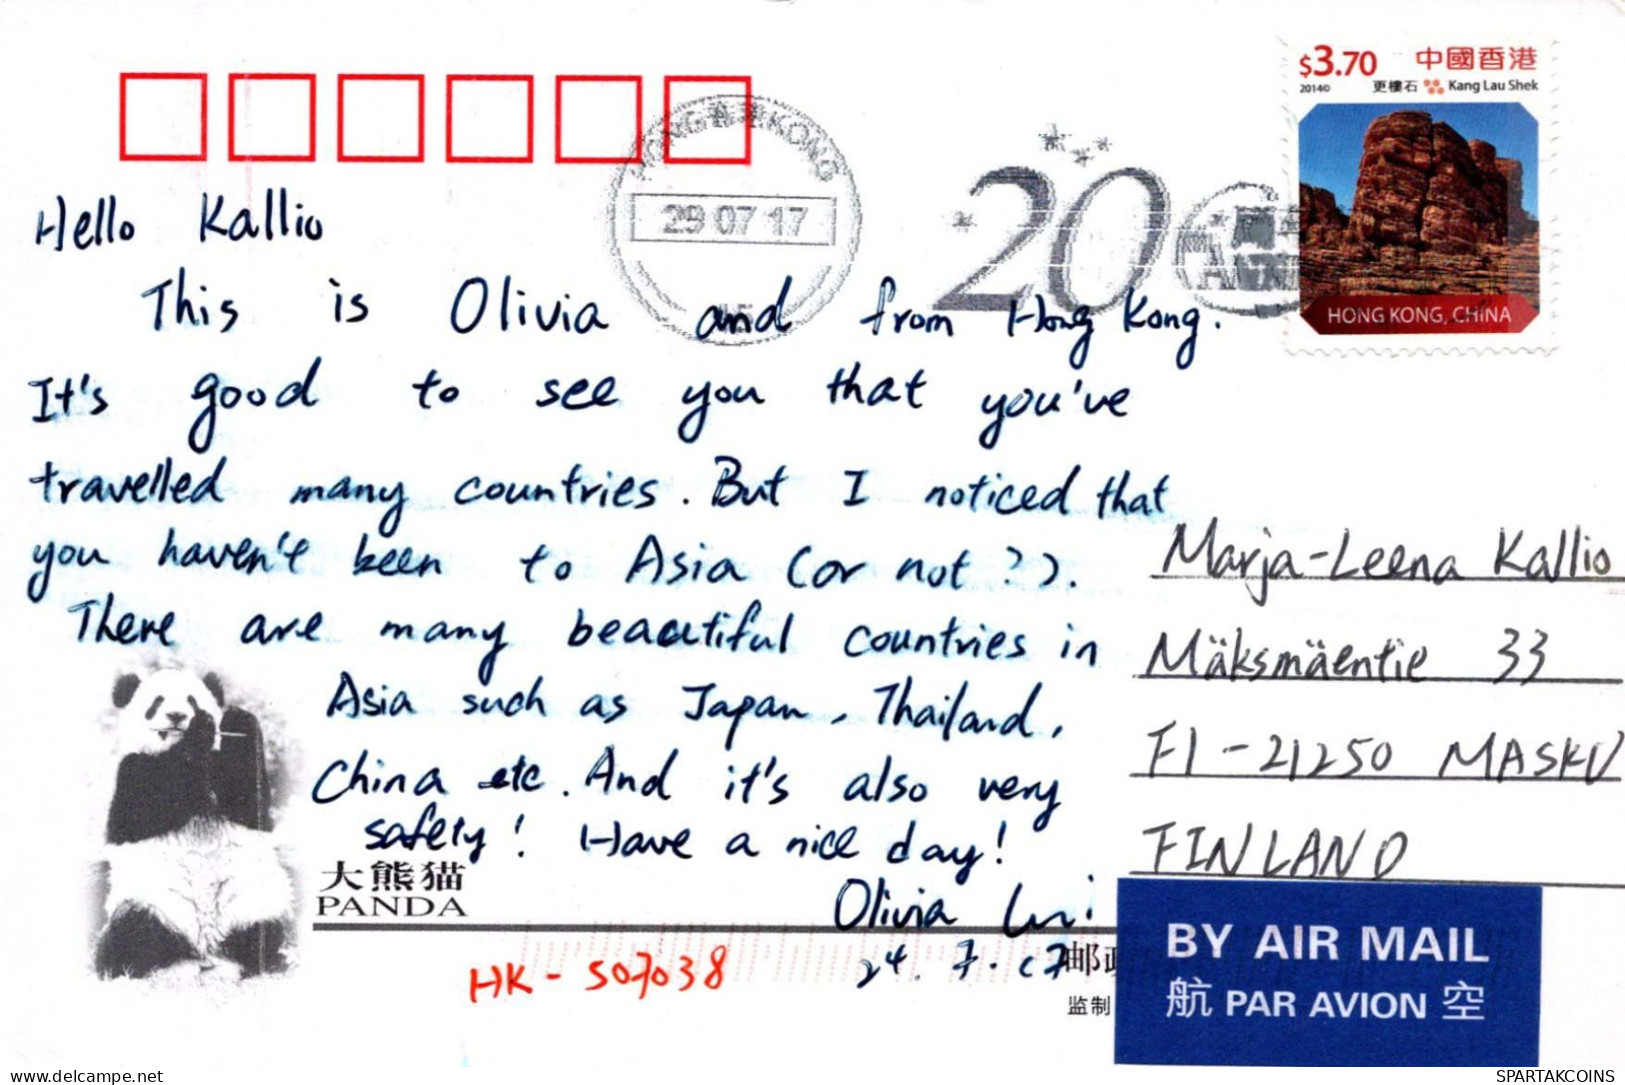 $3.70 中國香港
2014© 更樓石 Kang Lau Shek
HONG KONG, CHINA
HONG 香港 KONG
29 07 17
20
Hello Kallio
This is Olivia and from Hong Kong.
It's good to see you that you've
travelled many countries. But I noticed that
you haven't been to Asia (or not?).
There are many beautiful countries in
Asia such as Japan, Thailand,
China etc. And it's also very
safety! Have a nice day!
Olivia Lui
24.7.17
大熊猫
PANDA
HK-507038
Marja-Leena Kallio
Mäksmäentie 33
FI-21250 MASKU
FINLAND
邮政
监制
BY AIR MAIL
航 PAR AVION 空
https://www.delcampe.net
SPARTAKCOINS